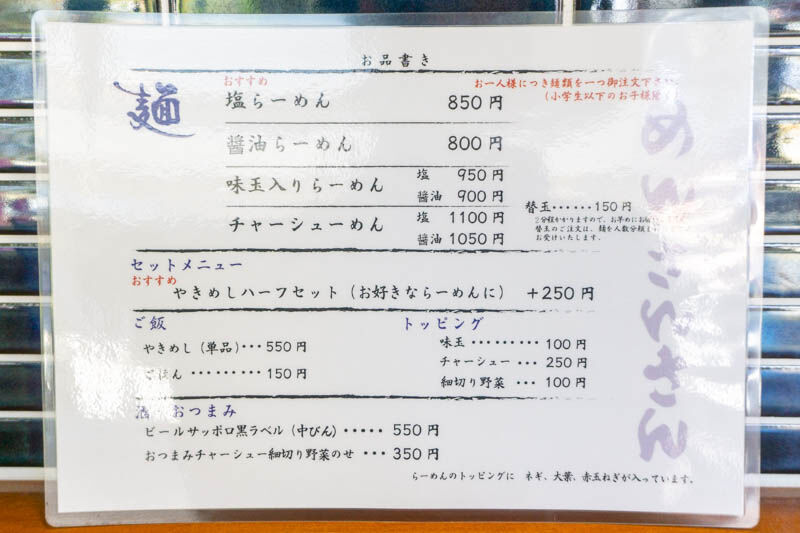 お品書き
麺
おすすめ
塩らーめん 850円
お一人様につき麺類を一つ御注文下さ
(小学生以下のお子様
醤油らーめん 800円
味玉入りらーめん 塩 950円
醤油 900円
チャーシューめん 塩 1100円
醤油 1050円
替玉・・・・・・150円
2分程かかりますので、お早めにお
替玉のご注文は、麺を人数分頼ま
お受けいたします。
セットメニュー
おすすめ
やきめしハーフセット(お好きならーめんに) +250円
ご飯
やきめし(単品)・・・550円
ごはん・・・・・・・・・150円
トッピング
味玉・・・・・・・・・100円
チャーシュー・・・250円
細切り野菜・・・100円
酒 おつまみ
ビールサッポロ黒ラベル(中びん)・・・・・550円
おつまみチャーシュー細切り野菜のせ・・・350円
らーめんのトッピングに ネギ、大葉、赤玉ねぎが入っています。